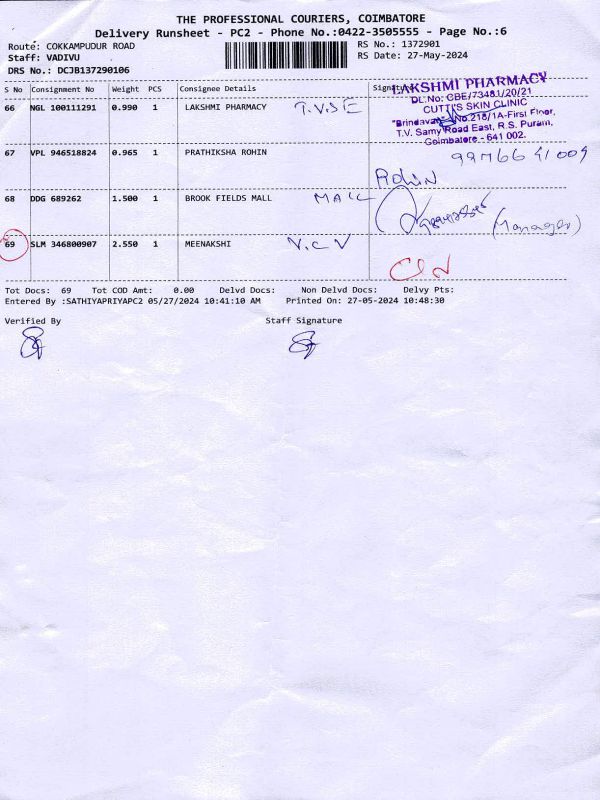 THE PROFESSIONAL COURIERS, COIMBATORE
Delivery Runsheet - PC2 - Phone No.:0422-3505555 - Page No.:6
Route: COKKAMPUDUR ROAD
RS No.: 1372901
Staff: VADIVU
RS Date: 27-May-2024
DRS No.: DCJB137290106
S No Consignment No Weight PCS Consignee Details
LAKSHMI PHARMACY
DL.No: CBE/73481/20/21
CUTTIS SKIN CLINIC
"Brindavan" No.218/1A-First Floor,
T.V. Samy Road East, R.S. Puram,
Coimbatore - 641 002.
66 NGL 100111291 0.990 1 LAKSHMI PHARMACY T.V.S E
67 VPL 946518824 0.965 1 PRATHIKSHA ROHIN
Rohin
68 DDG 689262 1.500 1 BROOK FIELDS MALL MALL
(Manager)
69 SLM 346800907 2.550 1 MEENAKSHI N.C.V
Tot Docs: 69 Tot COD Amt: 0.00 Delvd Docs: Non Delvd Docs: Delvy Pts:
Entered By :SATHIYAPRIYAPC2 05/27/2024 10:41:10 AM Printed On: 27-05-2024 10:48:30
Verified By Staff Signature